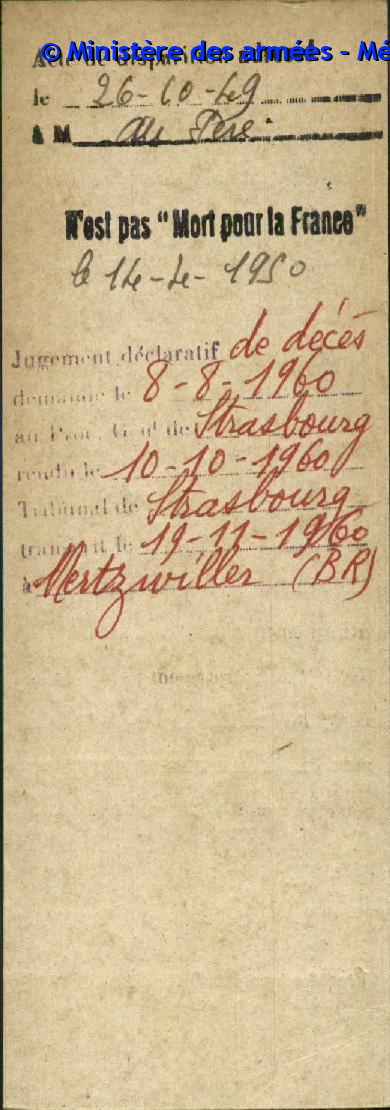 © Ministère des armées - Mé
Acte de disparition
le 26-10-49
à M au Père
N'est pas "Mort pour la France"
le 14-4-1950
Jugement déclaratif de décès
demandé le 8-8-1960
au Proc. Gral de Strasbourg
rendu le 10-10-1960
Tribunal de Strasbourg
transcrit le 19-11-1960
à Mertzwiller (BR)